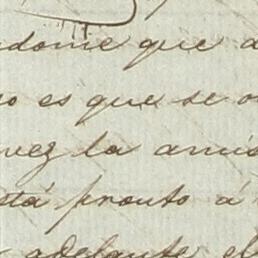 dome que a
o es que se o
vez la amis
stá pronto á
adelante el